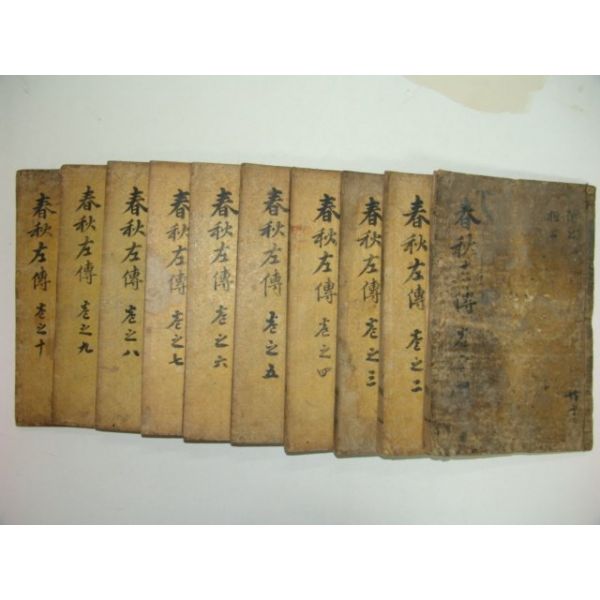 春秋左傳 卷之
春秋左傳 卷之二
春秋左傳 卷之三
春秋左傳 卷之四
春秋左傳 卷之五
春秋左傳 卷之六
春秋左傳 卷之七
春秋左傳 卷之八
春秋左傳 卷之九
春秋左傳 卷之十